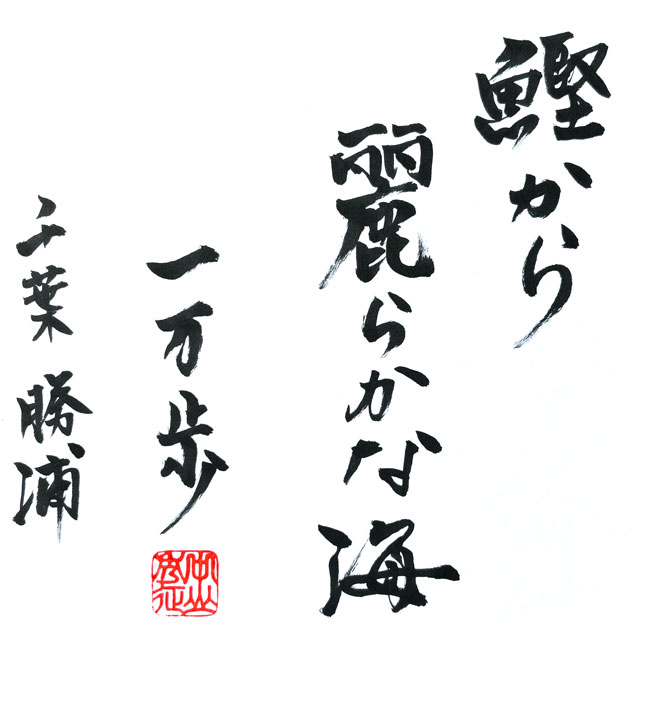 鰹から
麗らかな海
一万歩
千葉 勝浦